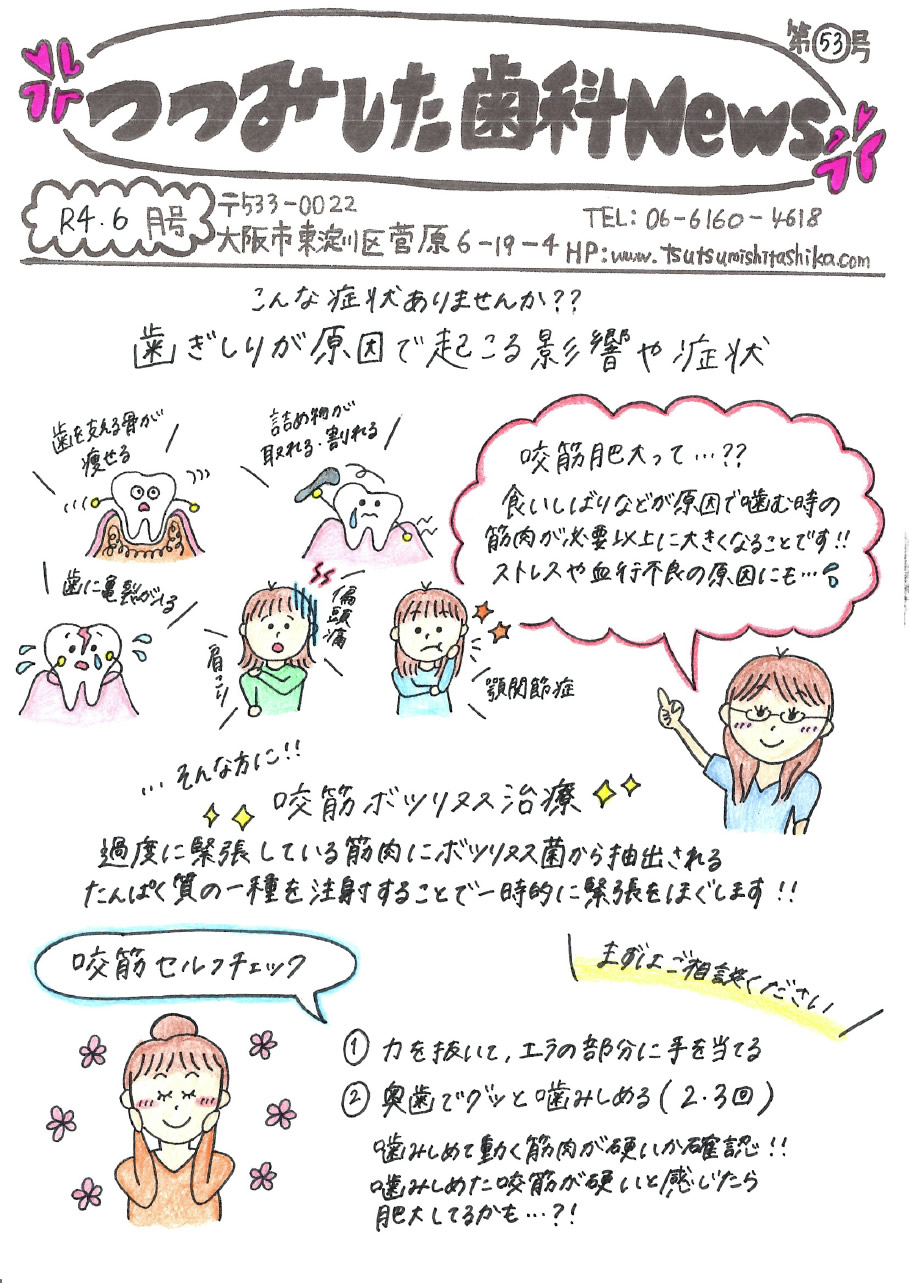 第53号
つつみした歯科News
R4.6月号
〒533-0022
大阪市東淀川区菅原6-19-4
TEL: 06-6160-4618
HP: www.tsutsumishitashika.com
こんな症状ありませんか??
歯ぎしりが原因で起こる影響や症状
歯を支える骨が
痩せる
詰め物が
取れる・割れる
歯に亀裂が入る
肩こり
偏頭痛
顎関節症
咬筋肥大って…??
食いしばりなどが原因で噛む時の
筋肉が必要以上に大きくなることです!!
ストレスや血行不良の原因にも…
…そんな方に!!
咬筋ボツリヌス治療
過度に緊張している筋肉にボツリヌス菌から抽出される
たんぱく質の一種を注射することで一時的に緊張をほぐします!!
咬筋セルフチェック
まずはご相談ください
① 力を抜いて、エラの部分に手を当てる
② 奥歯でグッと噛みしめる(2.3回)
噛みしめて動く筋肉が硬いか確認!!
噛みしめた咬筋が硬いと感じたら
肥大してるかも…?!